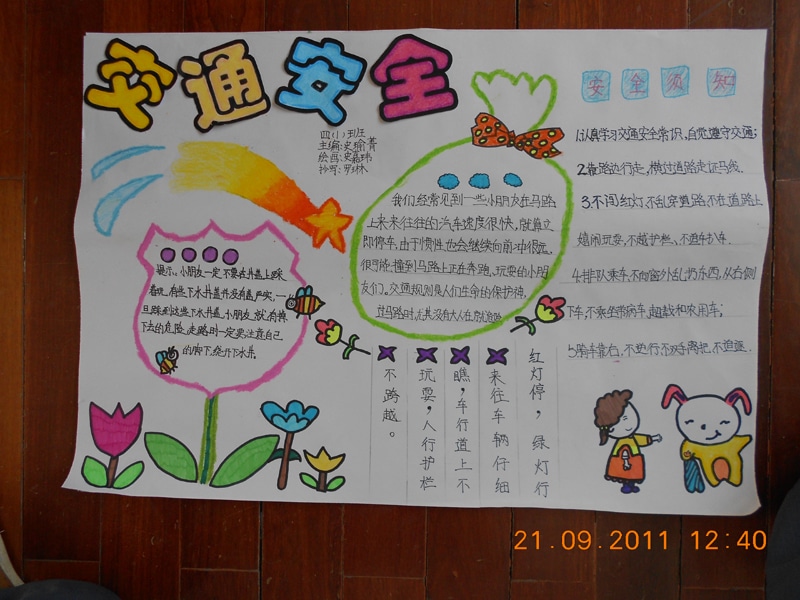 交通安全
四(1)班
主编:史瑜菁
绘画:史嘉玮
抄写:罗琳
我们经常见到一些小朋友在马路
上来来往往的汽车速度很快,就算立
即停车,由于惯性也会继续向前冲很远,
很可能撞到马路上正在奔跑、玩耍的小朋
友们。交通规则是人们生命的保护神,
过马路时,尤其没有大人在身边时
提示:小朋友一定不要去井盖上踩来
着玩,有些下水井盖并没有盖严实,一
旦踩到这些下水井盖,小朋友就有掉
下去的危险,走路时一定要注意自己
的脚下,绕开下水井。
红灯停,绿灯行
来往车辆仔细
瞧,车行道上不
玩耍,人行护栏
不跨越。
安全须知
1.认真学习交通安全常识,自觉遵守交通;
2.靠路边行走,横过道路走斑马线.
3.不闯红灯,不乱穿道路,不在道路上
嬉闹玩耍,不越护栏、不追车扒车.
4.排队乘车,不向窗外乱扔东西,从右侧
下车,不乘坐带病车,超载和农用车;
5.骑车靠右,不逆行不双手离把,不追逐.
21.09.2011 12:40